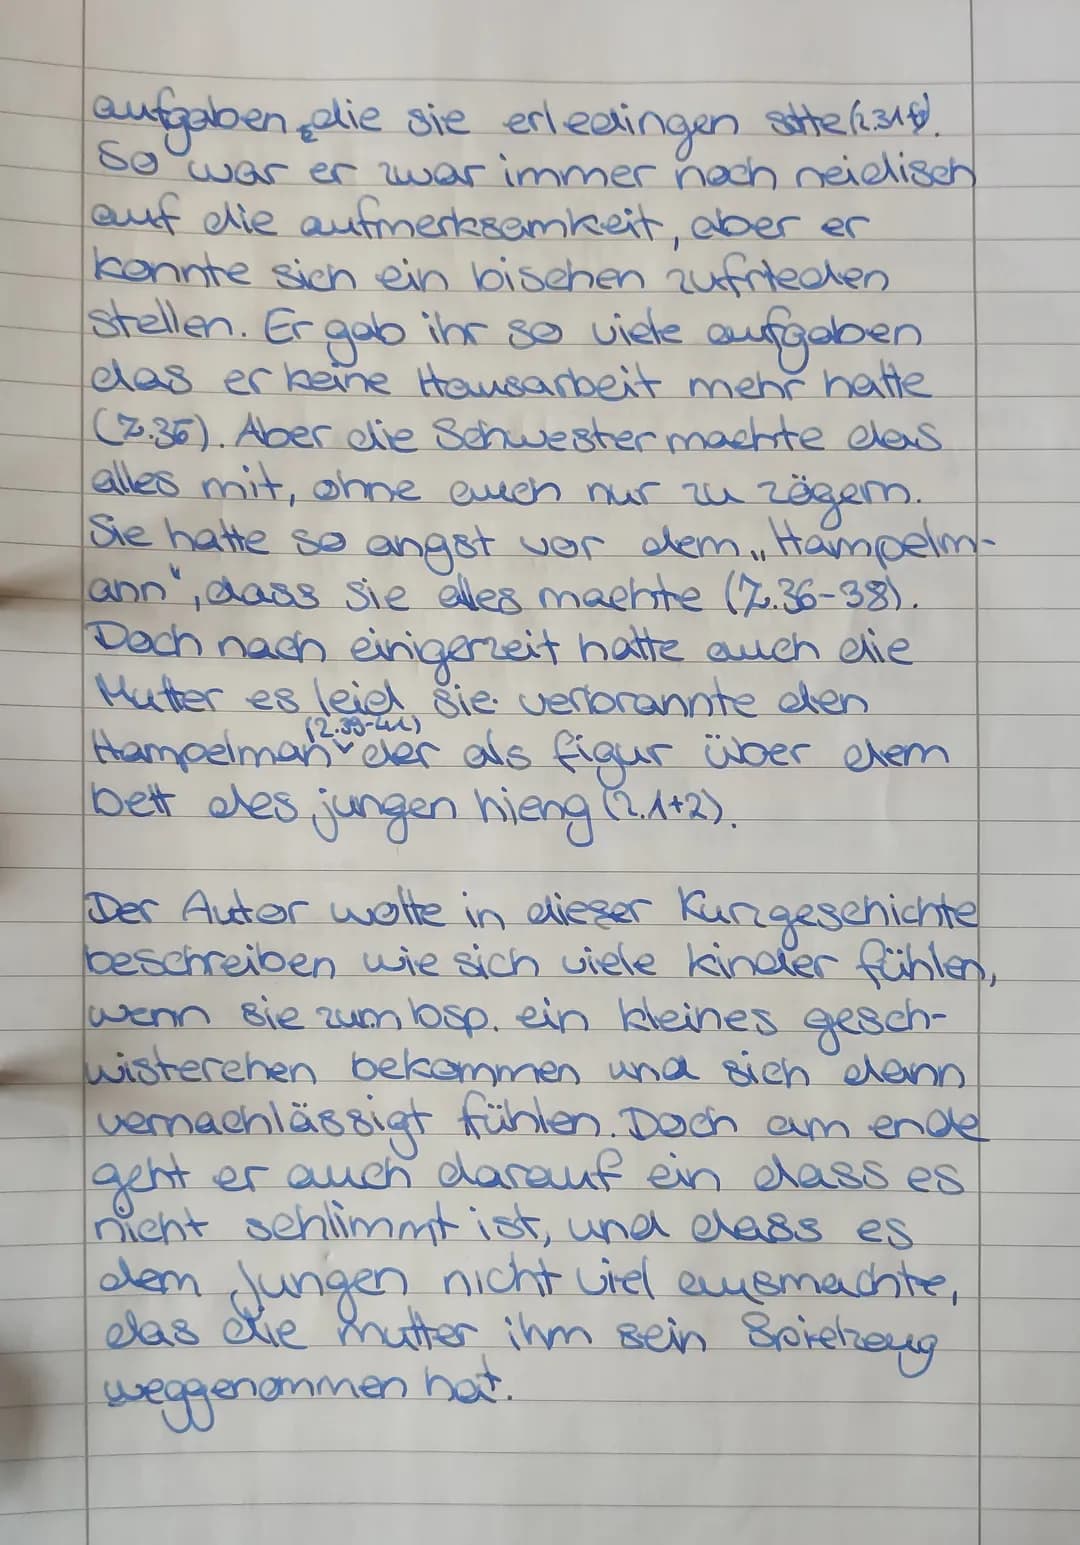 aufgaben, die sie erledingen sollte (Z.31f).
So war er zwar immer noch neidisch
auf die aufmerksamkeit, aber er
konnte sich ein bischen zufrieden
stellen. Er gab ihr so viele aufgaben
das er keine Hausarbeit mehr hatte
(Z.35). Aber die Schwester machte das
alles mit, ohne auch nur zu zögern.
Sie hatte so angst vor dem „Hampelm-
ann", dass sie alles machte (Z.36-38).
Doch nach einigerzeit hatte auch die
Mutter es leid sie verbrannte den
(Z.39-41)
Hampelman der als figur über dem
bett des jungen hieng (Z.1+2).
Der Autor wollte in dieser Kurzgeschichte
beschreiben wie sich viele kinder fühlen,
wenn sie zum bsp. ein kleines gesch-
wisterchen bekommen und sich dann
vernachlässigt fühlen. Doch am ende
geht er auch darauf ein dass es
nicht schlimmt ist, und dass es
dem Jungen nicht viel ausmachte,
das die mutter ihm sein Spielzeug
weggenommen hat.